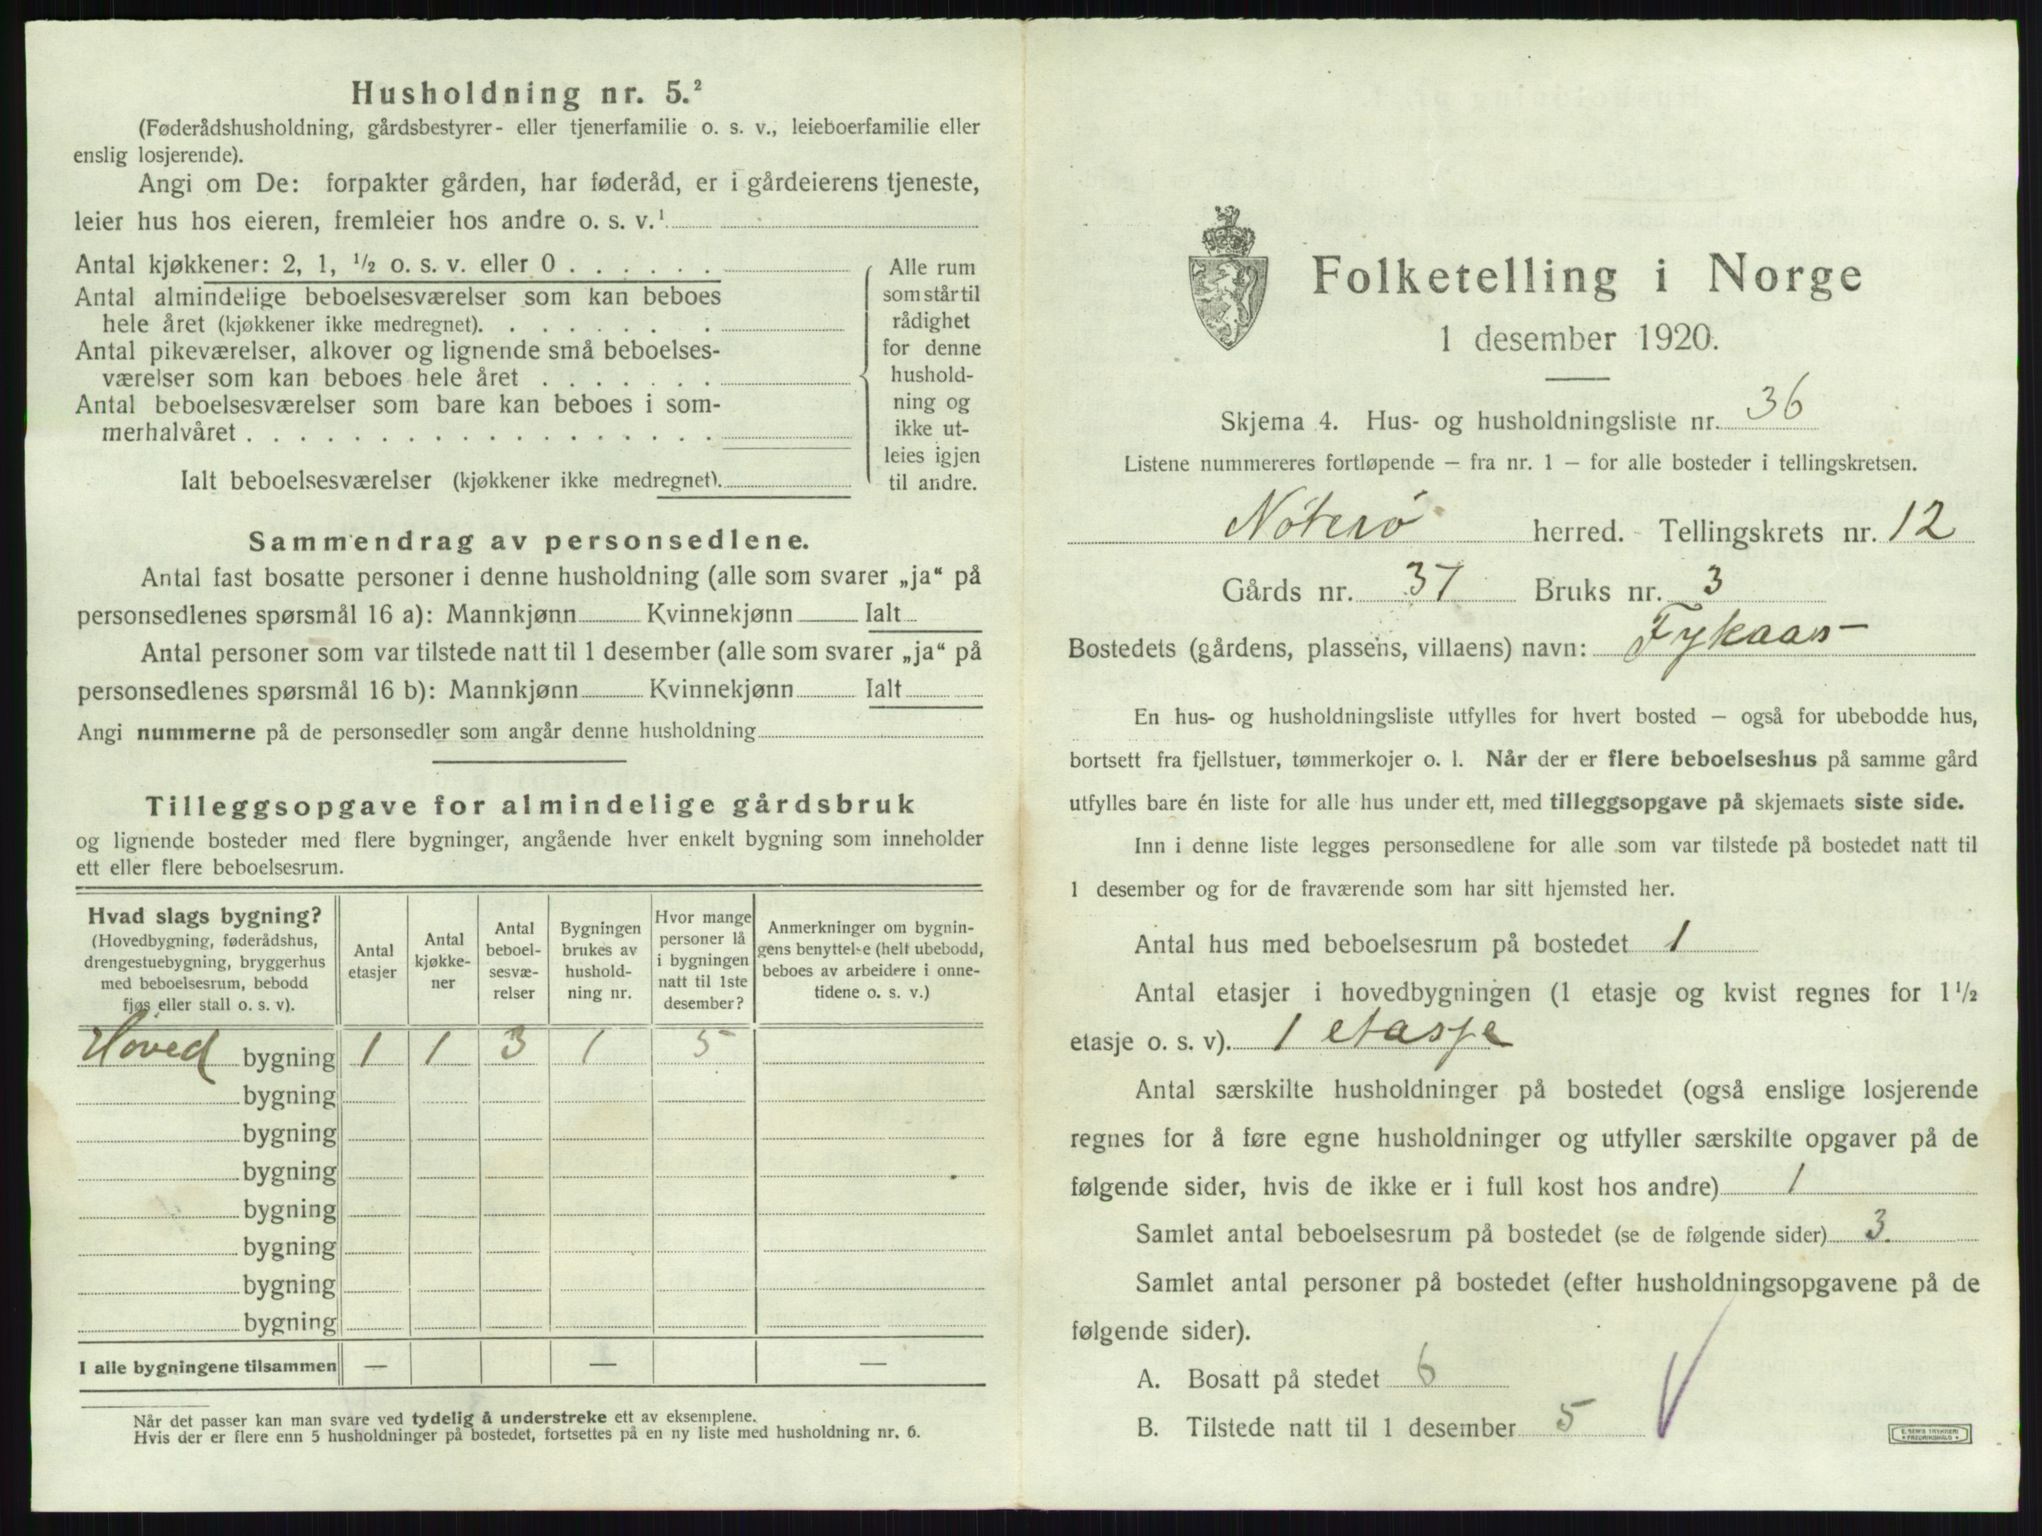 Husholdning nr. 5.²
(Føderådshusholdning, gårdsbestyrer- eller tjenerfamilie o. s. v., leieboerfamilie eller
enslig losjerende).
Angi om De: forpakter gården, har føderåd, er i gårdeierens tjeneste,
leier hus hos eieren, fremleier hos andre o. s. v.¹
Antal kjøkkener: 2, 1, ½ o. s. v. eller 0 . . . . . .
Antal almindelige beboelsesværelser som kan beboes
hele året (kjøkkener ikke medregnet). . . . . . . .
Antal pikeværelser, alkover og lignende små beboelses-
værelser som kan beboes hele året . . . . . . .
Antal beboelsesværelser som bare kan beboes i som-
merhalvåret . . . . . . . . . . . . . . . . . .
Ialt beboelsesværelser (kjøkkener ikke medregnet).
Alle rum
som står til
rådighet
for denne
hushold-
ning og
ikke ut-
leies igjen
til andre.
Sammendrag av personsedlene.
Antal fast bosatte personer i denne husholdning (alle som svarer „ja“ på
personsedlenes spørsmål 16 a): Mannkjønn Kvinnekjønn Ialt
Antal personer som var tilstede natt til 1 desember (alle som svarer „ja“ på
personsedlenes spørsmål 16 b): Mannkjønn Kvinnekjønn Ialt
Angi nummerne på de personsedler som angår denne husholdning
Tilleggsopgave for almindelige gårdsbruk
og lignende bosteder med flere bygninger, angående hver enkelt bygning som inneholder
ett eller flere beboelsesrum.
Hvad slags bygning?
(Hovedbygning, føderådshus,
drengestuebygning, bryggerhus
med beboelsesrum, bebodd
fjøs eller stall o. s. v).
Antal
etasjer
Antal
kjøkke-
ner
Antal
beboel-
sesvæ-
relser
Bygningen
brukes av
hushold-
ning nr.
Hvor mange
personer lå
i bygningen
natt til 1ste
desember?
Anmerkninger om bygnin-
gens benyttelse (helt ubebodd,
beboes av arbeidere i onne-
tidene o. s. v.)
Hoved bygning 1 1 3 1 5
bygning
bygning
bygning
bygning
bygning
bygning
bygning
I alle bygningene tilsammen — — —
Når det passer kan man svare ved tydelig å understreke ett av eksemplene.
Hvis der er flere enn 5 husholdninger på bostedet, fortsettes på en ny liste med husholdning nr. 6.
Folketelling i Norge
1 desember 1920.
Skjema 4. Hus- og husholdningsliste nr. 36
Listene nummereres fortløpende – fra nr. 1 – for alle bosteder i tellingskretsen.
Nøterø herred. - Tellingskrets nr. 12
Gårds nr. 37 Bruks nr. 3
Bostedets (gårdens, plassens, villaens) navn: Fykaas
En hus- og husholdningsliste utfylles for hvert bosted – også for ubebodde hus,
bortsett fra fjellstuer, tømmerkojer o. l. Når der er flere beboelseshus på samme gård
utfylles bare én liste for alle hus under ett, med tilleggsopgave på skjemaets siste side.
Inn i denne liste legges personsedlene for alle som var tilstede på bostedet natt til
1 desember og for de fraværende som har sitt hjemsted her.
Antal hus med beboelsesrum på bostedet 1
Antal etasjer i hovedbygningen (1 etasje og kvist regnes for 1½
etasje o. s. v). 1 etasje
Antal særskilte husholdninger på bostedet (også enslige losjerende
regnes for å føre egne husholdninger og utfyller særskilte opgaver på de
følgende sider, hvis de ikke er i full kost hos andre) 1
Samlet antal beboelsesrum på bostedet (se de følgende sider) 3.
Samlet antal personer på bostedet (efter husholdningsopgavene på de
følgende sider).
A. Bosatt på stedet 6
B. Tilstede natt til 1 desember 5